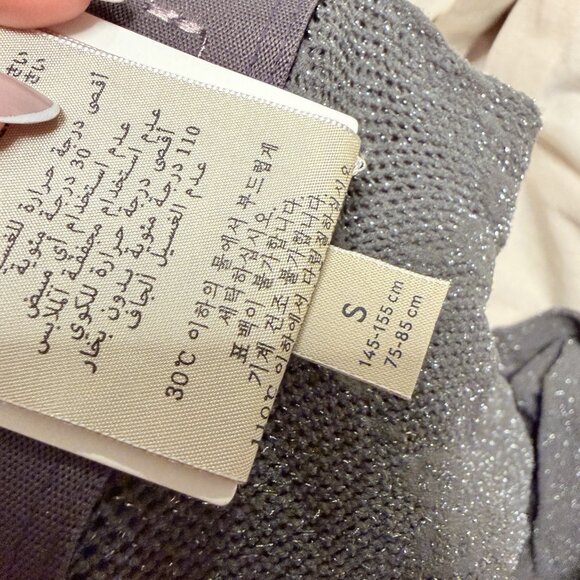 أقصى درجة حرارة للغسيل
30 درجة مئوية
عدم استخدام أي مبيض
عدم استخدام مجففة الملابس
أقصى درجة حرارة للكوي
110 درجة مئوية بدون بخار
عدم الغسيل الجاف
30℃ 이하의 물에서 부드럽게
세탁하십시오.
표백이 불가합니다.
기계 건조 불가합니다.
110℃ 이하에서 다림질하십시오
S
145-155 cm
75-85 cm